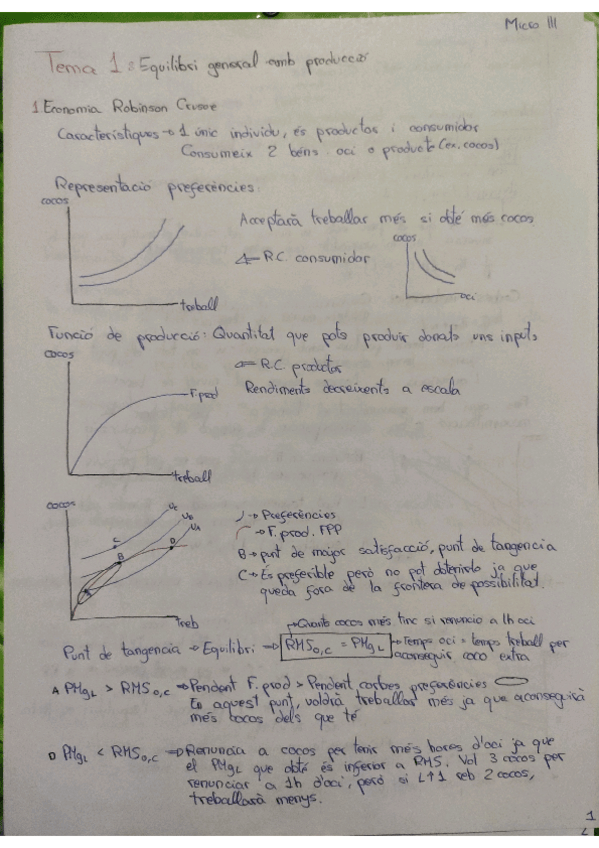 Micro III
Tema 1: Equilibri general amb producció
1 Economia Robinson Crusoe
Característiques → 1 únic individu, és productor i consumidor
Consumeix 2 béns: oci o producte (ex, cocos)
Representació preferències:
cocos
Acceptarà treballar més si obté més cocos
R.C. consumidor
cocos
oci
treball
Funció de producció: Quantitat que pots produir donats uns inputs
cocos
R.C. productor
Rendiments decreixents a escala
F. prod
treball
cocos
Uc
UB
UA
C
B
D
treb
) → Preferències
→ F. prod. FPP
B → punt de major satisfacció, punt de tangencia
C → És preferible però no pot obtenirlo ja que
queda fora de la frontera de possibilitat.
Quants cocos més tinc si renuncio a 1h oci
Punt de tangencia → Equilibri → RMS o,c = PMg L → Temps oci = temps treball per
aconseguir coco extra
A PMg L > RMS o,c → Pendent F. prod > Pendent corbes preferències
En aquest punt, voldrà treballar més ja que aconseguirà
més cocos dels que té
D PMg L < RMS o,c → Renuncia a cocos per tenir més hores d'oci ja que
el PMg L que obté és inferior a RMS. Vol 3 cocos per
renunciar a 1h d'oci, però si L↑1 reb 2 cocos,
treballarà menys.
1